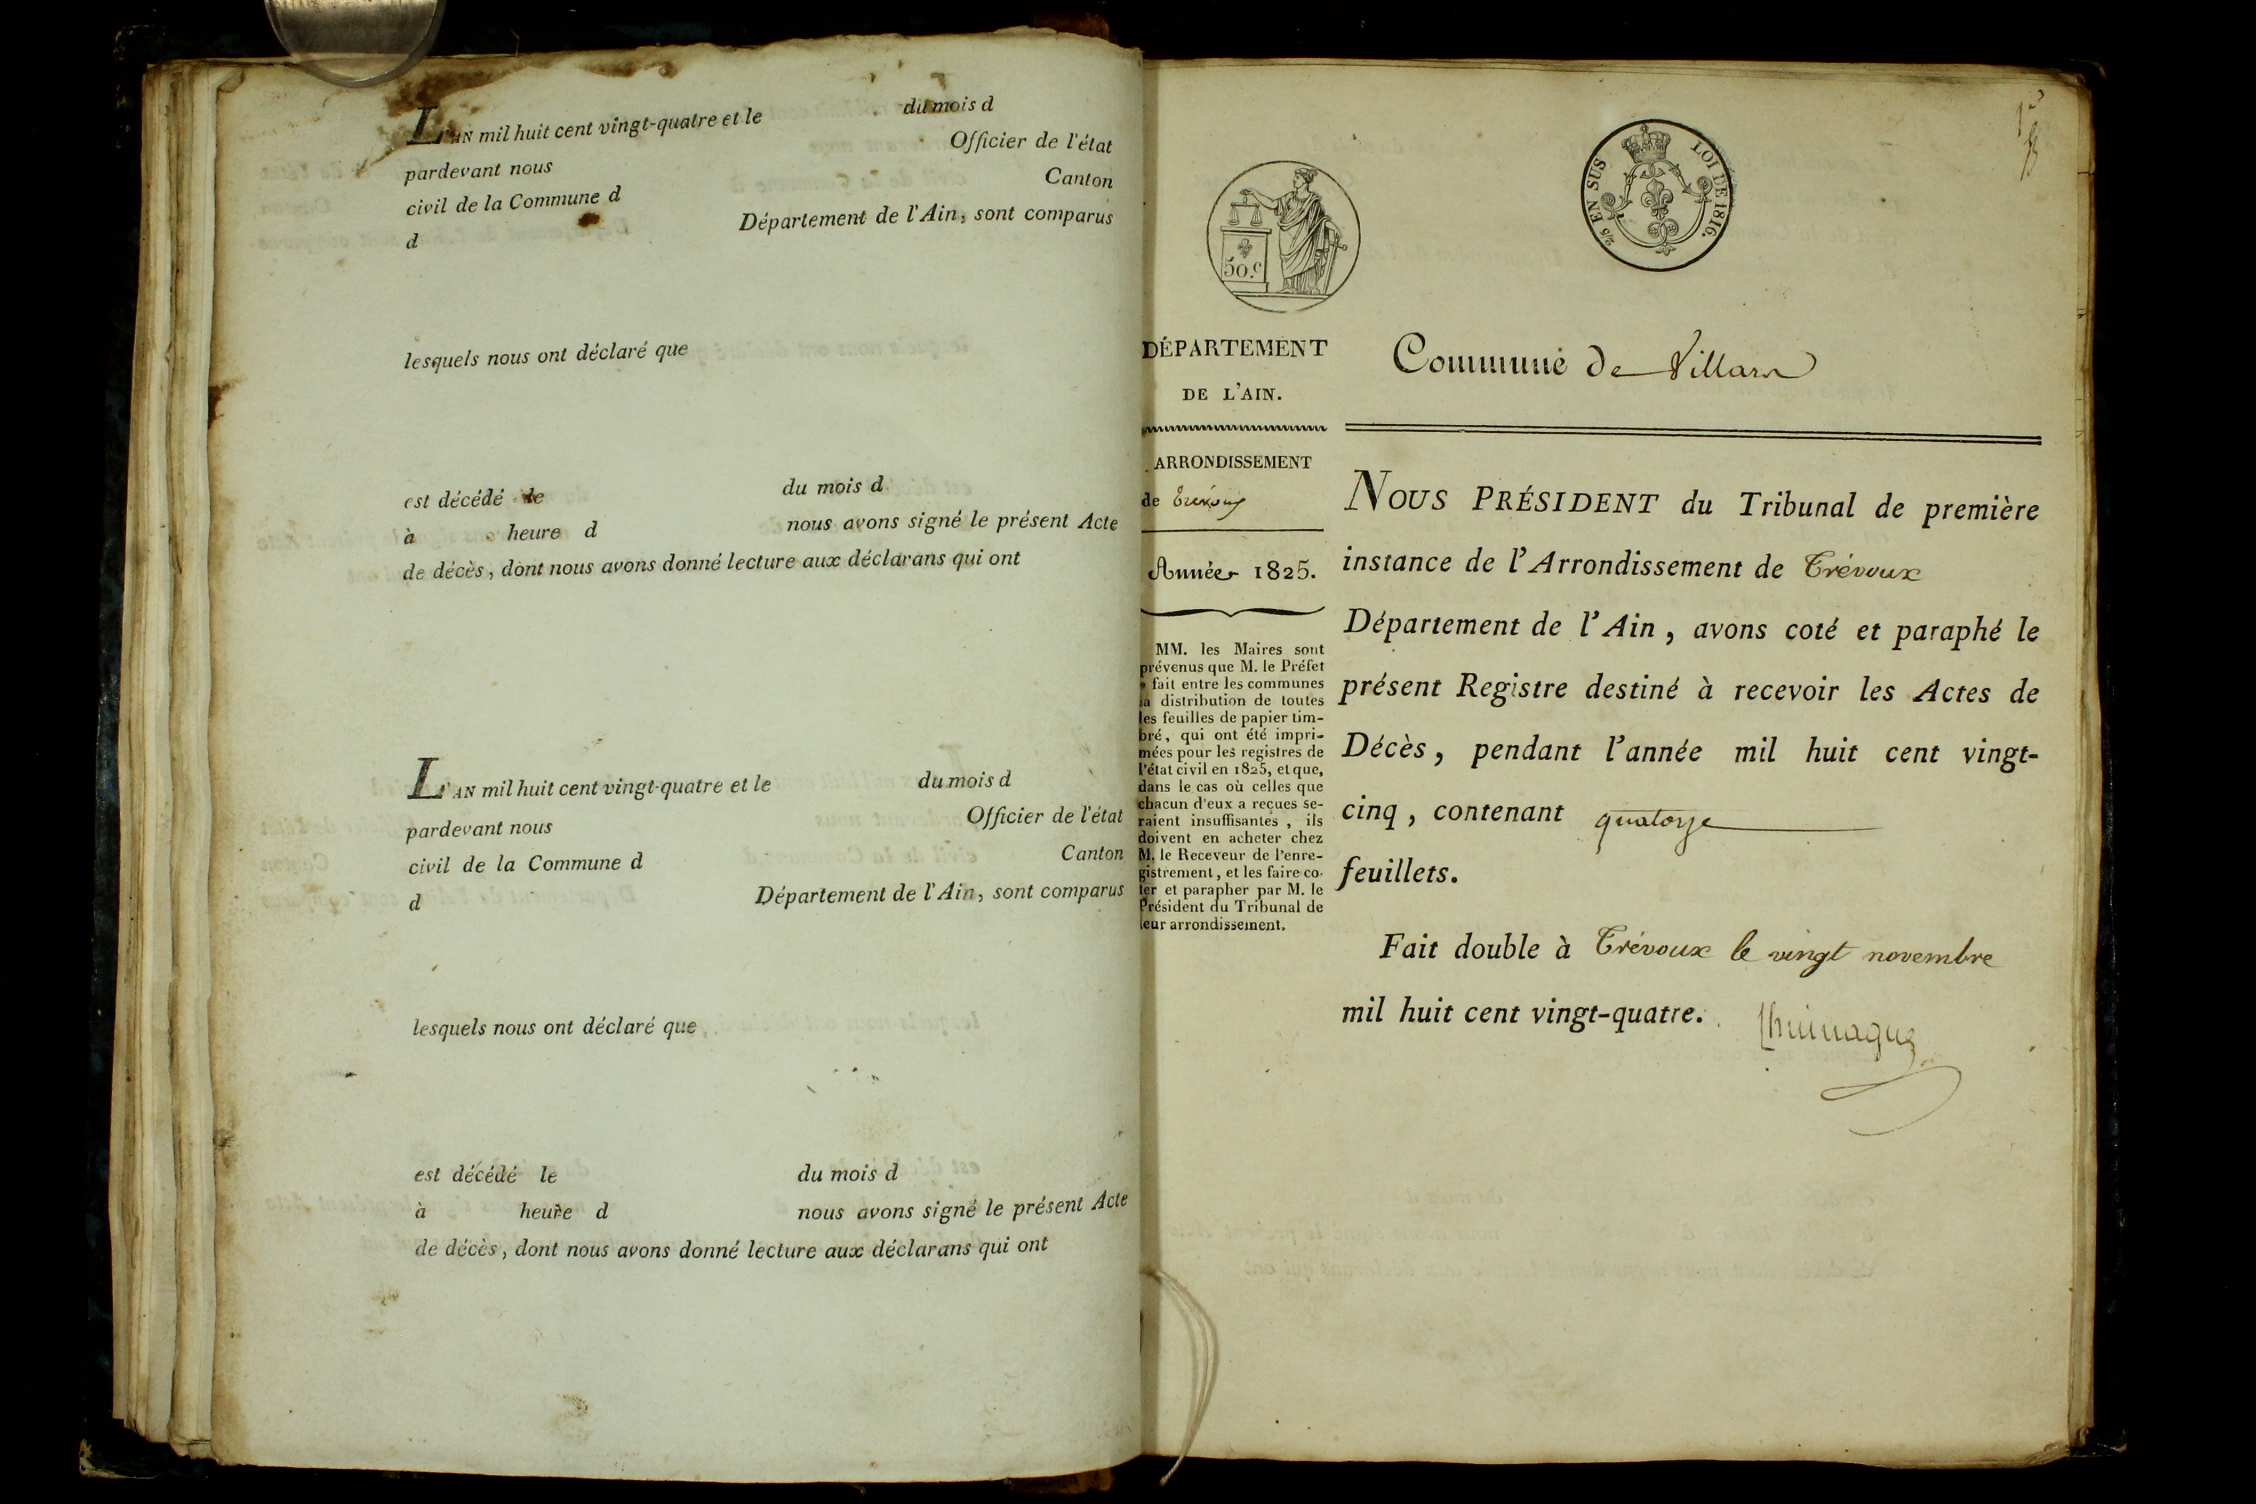 L'AN mil huit cent vingt-quatre et le du mois d
pardevant nous Officier de l'état
civil de la Commune d Canton
d Département de l'Ain, sont comparus
lesquels nous ont déclaré que
est décédé le du mois d
à heure d nous avons signé le présent Acte
de décès, dont nous avons donné lecture aux déclarans qui ont
L'AN mil huit cent vingt-quatre et le du mois d
pardevant nous Officier de l'état
civil de la Commune d Canton
d Département de l'Ain, sont comparus
lesquels nous ont déclaré que
est décédé le du mois d
à heure d nous avons signé le présent Acte
de décès, dont nous avons donné lecture aux déclarans qui ont
50.c
2/5 EN SUS LOI DE 1816.
DÉPARTEMENT
DE L'AIN.
ARRONDISSEMENT
de Trévoux
Année 1825.
MM. les Maires sont
prévenus que M. le Préfet
a fait entre les communes
la distribution de toutes
les feuilles de papier tim-
bré, qui ont été impri-
mées pour les registres de
l'état civil en 1825, et que,
dans le cas où celles que
chacun d'eux a reçues se-
raient insuffisantes, ils
doivent en acheter chez
M. le Receveur de l'enre-
gistrement, et les faire co-
ter et parapher par M. le
Président du Tribunal de
leur arrondissement.
Commune de Villars
NOUS PRÉSIDENT du Tribunal de première
instance de l'Arrondissement de Trévoux
Département de l'Ain, avons coté et paraphé le
présent Registre destiné à recevoir les Actes de
Décès, pendant l'année mil huit cent vingt-
cinq, contenant quatorze
feuillets.
Fait double à Trévoux le vingt novembre
mil huit cent vingt-quatre.